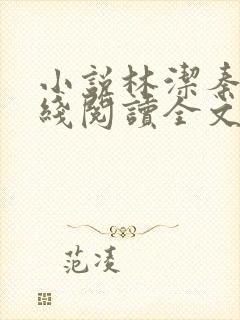 小説林潔秦
綫閲讀全文
范凌